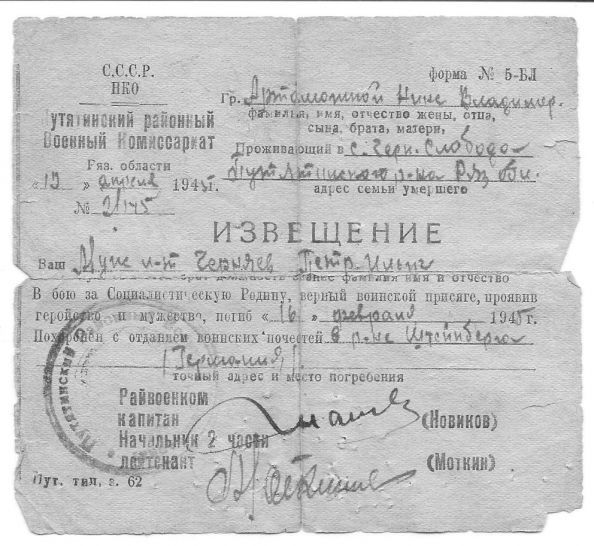 С.С.С.Р.
НКО
Путятинский районный
Военный Комиссариат
Ряз. области
«13» апреля 1945г.
№ 2/145
форма № 5-БЛ
Гр. Артамоновой Нине Владимир.
фамилья, имя, отчество жены, отца,
сына, брата, матери,
Проживающий в с. Черн. Слобода
Путятинского р-на Ряз обл.
адрес семьи умершего
ИЗВЕЩЕНИЕ
Ваш Муж Черняев Петр Ильич
звание фамилия имя и отчество
В бою за Социалистическую Родину, верный воинской присяге, проявив
геройство и мужество, погиб «16» февраля 1945г.
Похоронен с отданием воинских почестей в р-не Штейнберга
(Германия).
точный адрес и место погребения
Райвоенком
капитан (Новиков)
Начальник 2 части
лейтенант (Моткин)
Пут. тип. з. 62
Путятинский